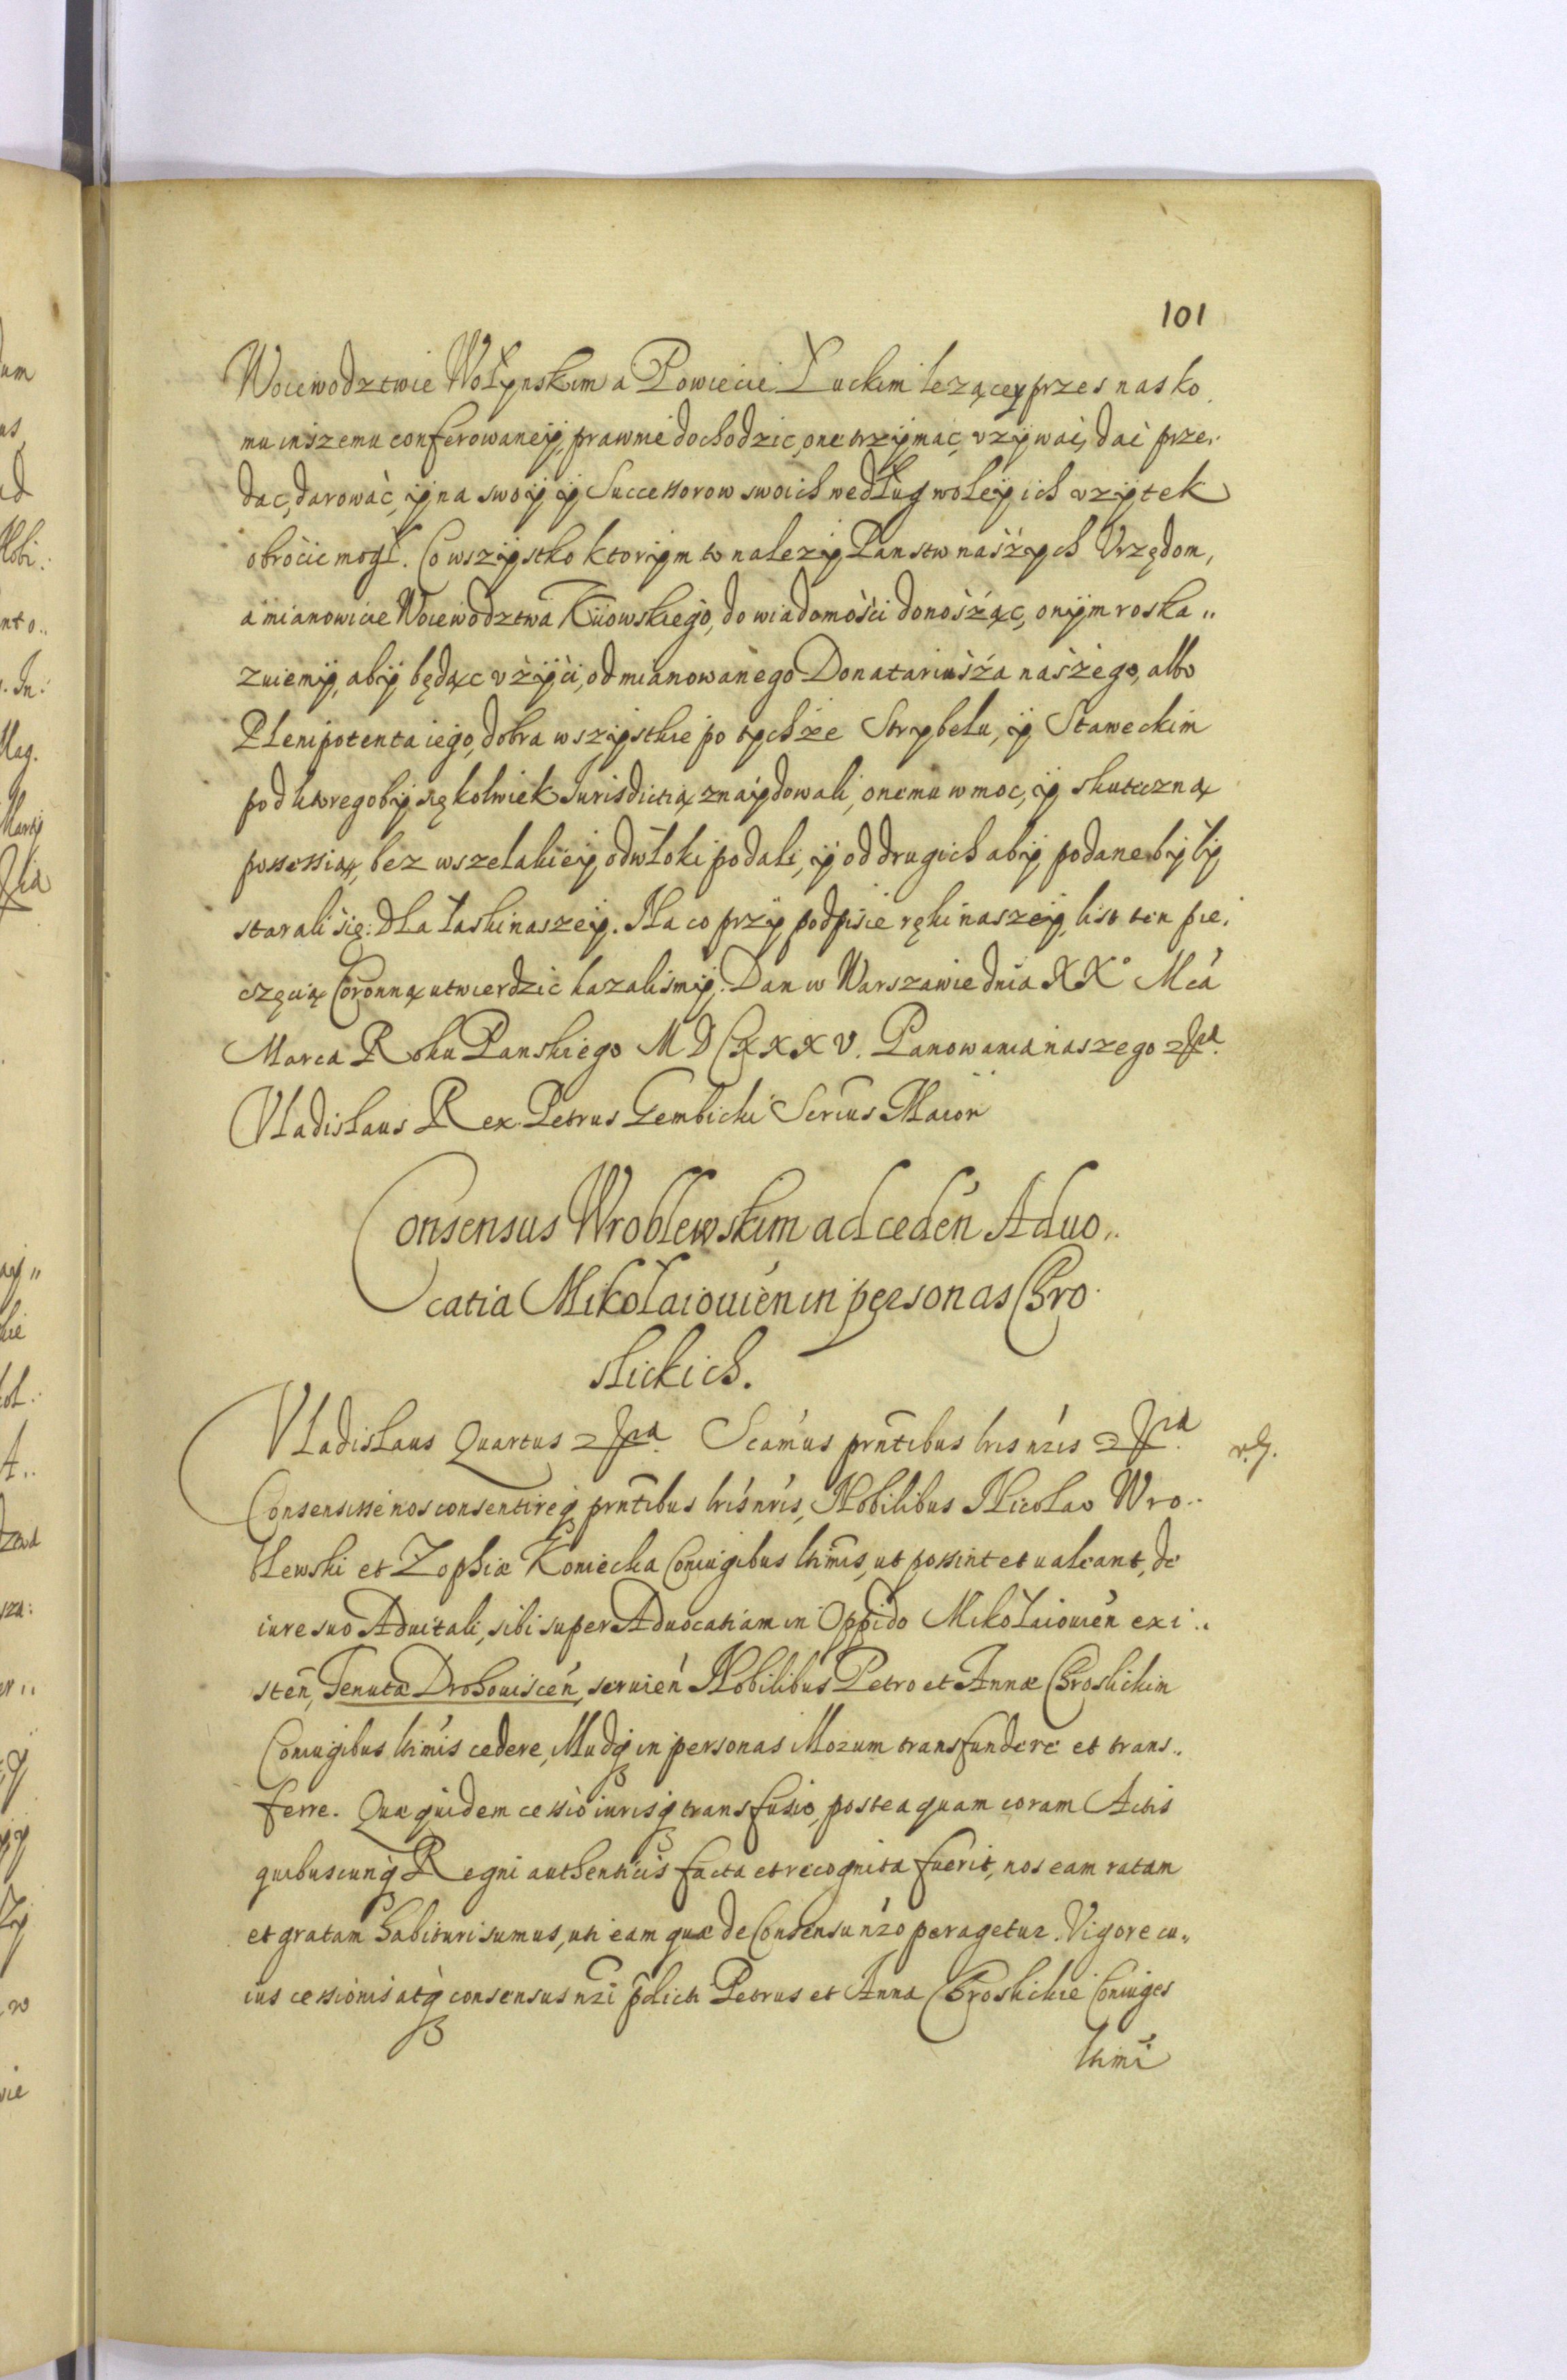 101
Woiewodztwie Wołynskim a Powiecie Łuckim lezącey przes nas ko
mu inszemu conferowaneÿ, prawnie dochodzic, one trzÿmac, vzÿwać, dać prze..
dac, darować, ÿ na swoÿ ÿ Successorow swoich według woleÿ ich vzÿtek
obrócic mogł. Co wszÿstko ktorÿm to nalezÿ Panstw naszÿch Vrzędom,
a mianowicie Woiewodztwa Kiiowskiego, do wiadomości donosząc, onÿm roska..
zuiemÿ, abÿ będąc vzÿći, od mianowanego Donatariusza naszego, albo
Plenipotenta iego, dobra wszÿstkie po tychze Strybelu, ÿ Staweckim
pod ktoregobÿ się kolwiek Iurisdictią znaÿdowali, onemu w moc, ÿ skuteczną
possessią, bez wszelakieÿ odwłoki podali, ÿ od drugich abÿ podane bÿłÿ
starali się: dla łaski naszeÿ. Na co przÿ podpisie ręki naszeÿ, list ten pie.
częcią Coronną utwierdzic kazaliśmÿ. Dan w Warszawie dnia XX° Mcá
Marca Roku Panskiego MDCXXXV. Panowania naszego
Vladislaus Rex. Petrus Gembicki Secius Maior
Consensus Wroblewskim ad ceden Aduo..
catia Mikołaiouien in personas Chro
slickich.
Vladislaus Quartus Scamus prntibus lris nris
Consensisse nos consentireq prntibus lris nris, Nobilibus Nicolao Wro..
blewski et Zophiæ Koniecka Coniugibus ltimis, ut possint et ualeant, de
iure suo Aduitali, sibi super Aduocatiam in Oppido Mikołaiouien exi..
sten, Tenutæ Drohouiscen, seruien Nobilibus Petro et Annæ Chroslickim
Coniugibus ltimis cedere, Illudq in personas illorum transfundere et trans..
ferre. Quæ quidem cessio iurisq transfusio, postea quam coram Actis
quibuscunq Regni authenticis facta et recognita fuerit, nos eam ratam
et gratam habituri sumus, uti eam quæ de Consensu nro peragetur. Vigore cu..
ius cessionis atq consensus nri pdicti Petrus et Anna Chroslickie Coniuges
ltimi